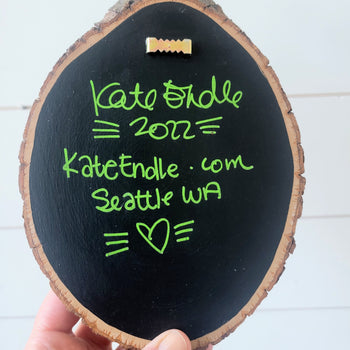 Kate Endle
2022
KateEndle.com
Seattle WA